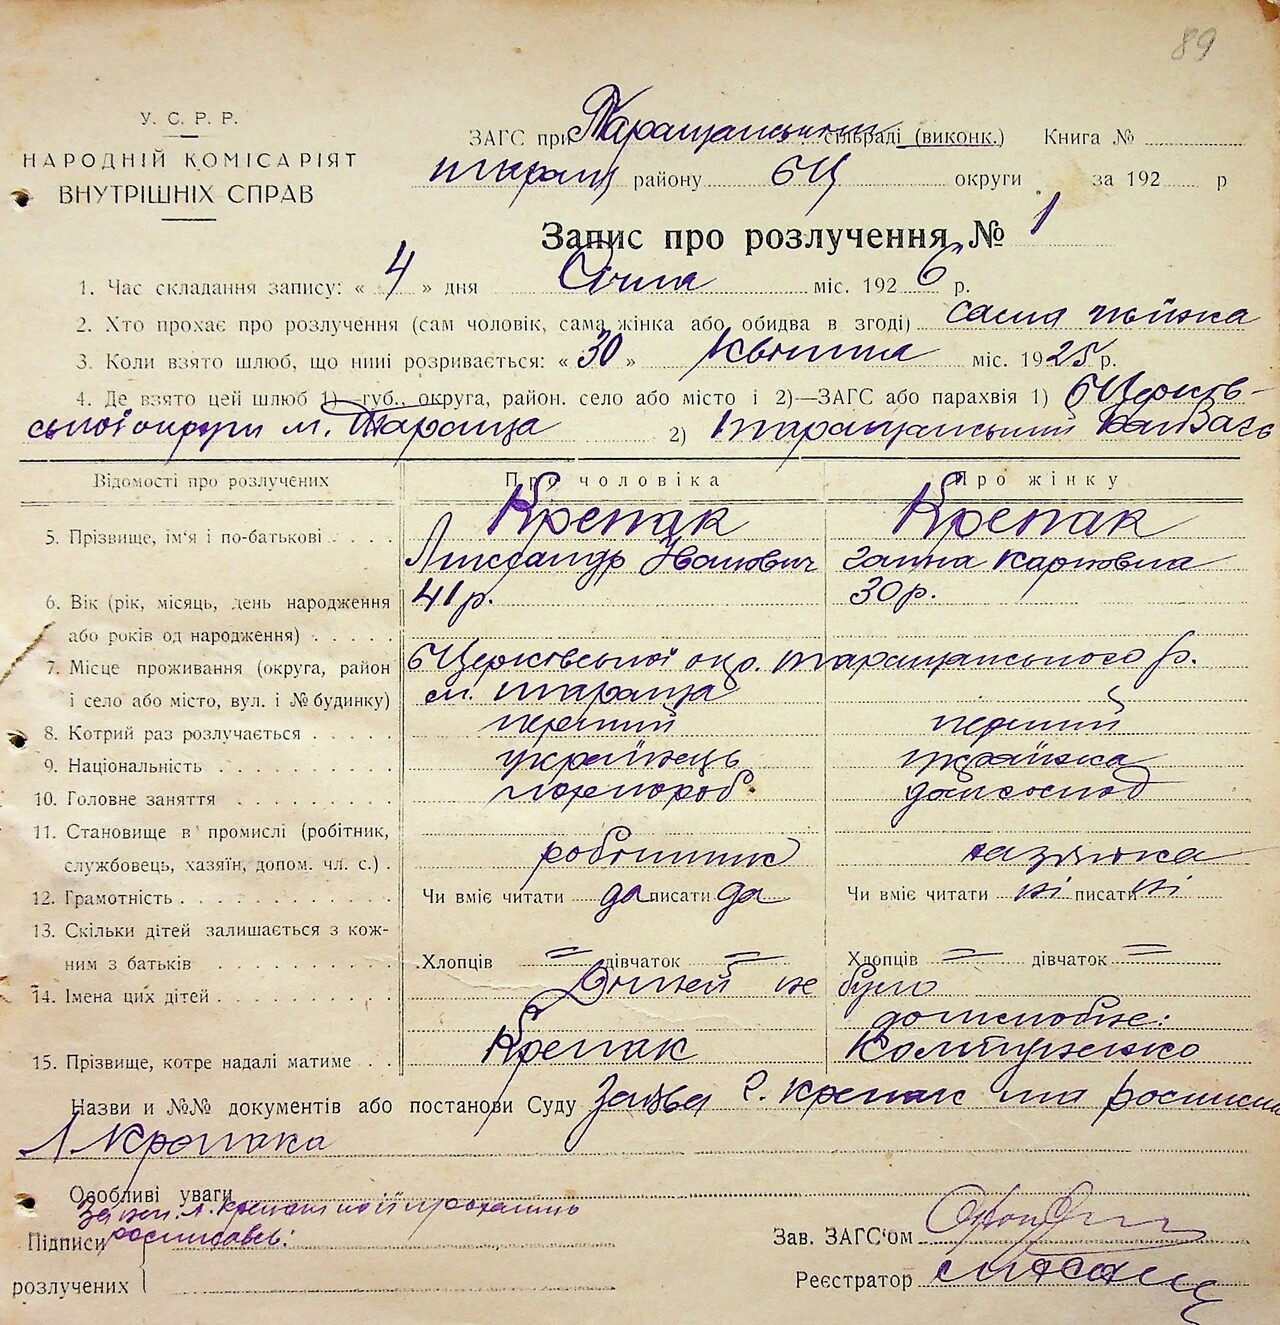 89
У. С. Р. Р.
НАРОДНІЙ КОМІСАРІЯТ
ВНУТРІШНІХ СПРАВ
ЗАГС при Таращанський сільраді (виконк.) Книга №
таращ району БЦ округи за 192 р
Запис про розлучення № 1
1. Час складання запису: « 4 » дня Січня міс. 1926 р.
2. Хто прохає про розлучення (сам чоловік, сама жінка або обидва в згоді) сама жінка
3. Коли взято шлюб, що нині розривається: « 30 » Квітня міс. 1925 р.
4. Де взято цей шлюб 1)—губ., округа, район. село або місто і 2)—ЗАГС або парахвія 1) БЦерків-
ської округи м. Тараща 2) Таращанський
Відомості про розлучених Про чоловіка Про жінку
5. Прізвище, ім'я і по-батькові Крепак Крепак
Лександр Іванович Ганна Карповна
6. Вік (рік, місяць, день народження 41 р. 30 р.
або років од народження)
7. Місце проживання (округа, район БЦерківської окр. Таращанського р.
і село або місто, вул. і № будинку) м. Тараща
8. Котрий раз розлучається перший перший
9. Національність українець українка
10. Головне заняття домгоспод
11. Становище в промислі (робітник,
службовець, хазяїн, допом. чл. с.) робітник хазяйка
12. Грамотність Чи вміє читати да писати да Чи вміє читати ні писати ні
13. Скільки дітей залишається з кож-
ним з батьків Хлопців = дівчаток = Хлопців = дівчаток =
14. Імена цих дітей Дітей не було
дошлюбне:
15. Прізвище, котре надалі матиме Крепак Колтуненко
Назви и №№ документів або постанови Суду Заява Г. Крепак та росписка
Л Крепака
Особливі уваги
За Л. Крепак
росписався:
Підписи
розлучених
Зав. ЗАГС'ом
Реєстратор